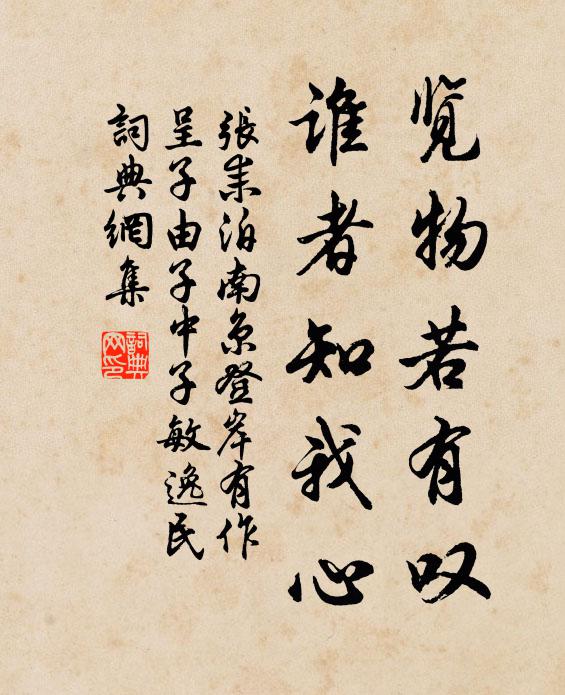 览物若有叹
谁者知我心
張耒泊南京登岸有作
呈子由子中子敏逸民
詞典網集
詞典网印